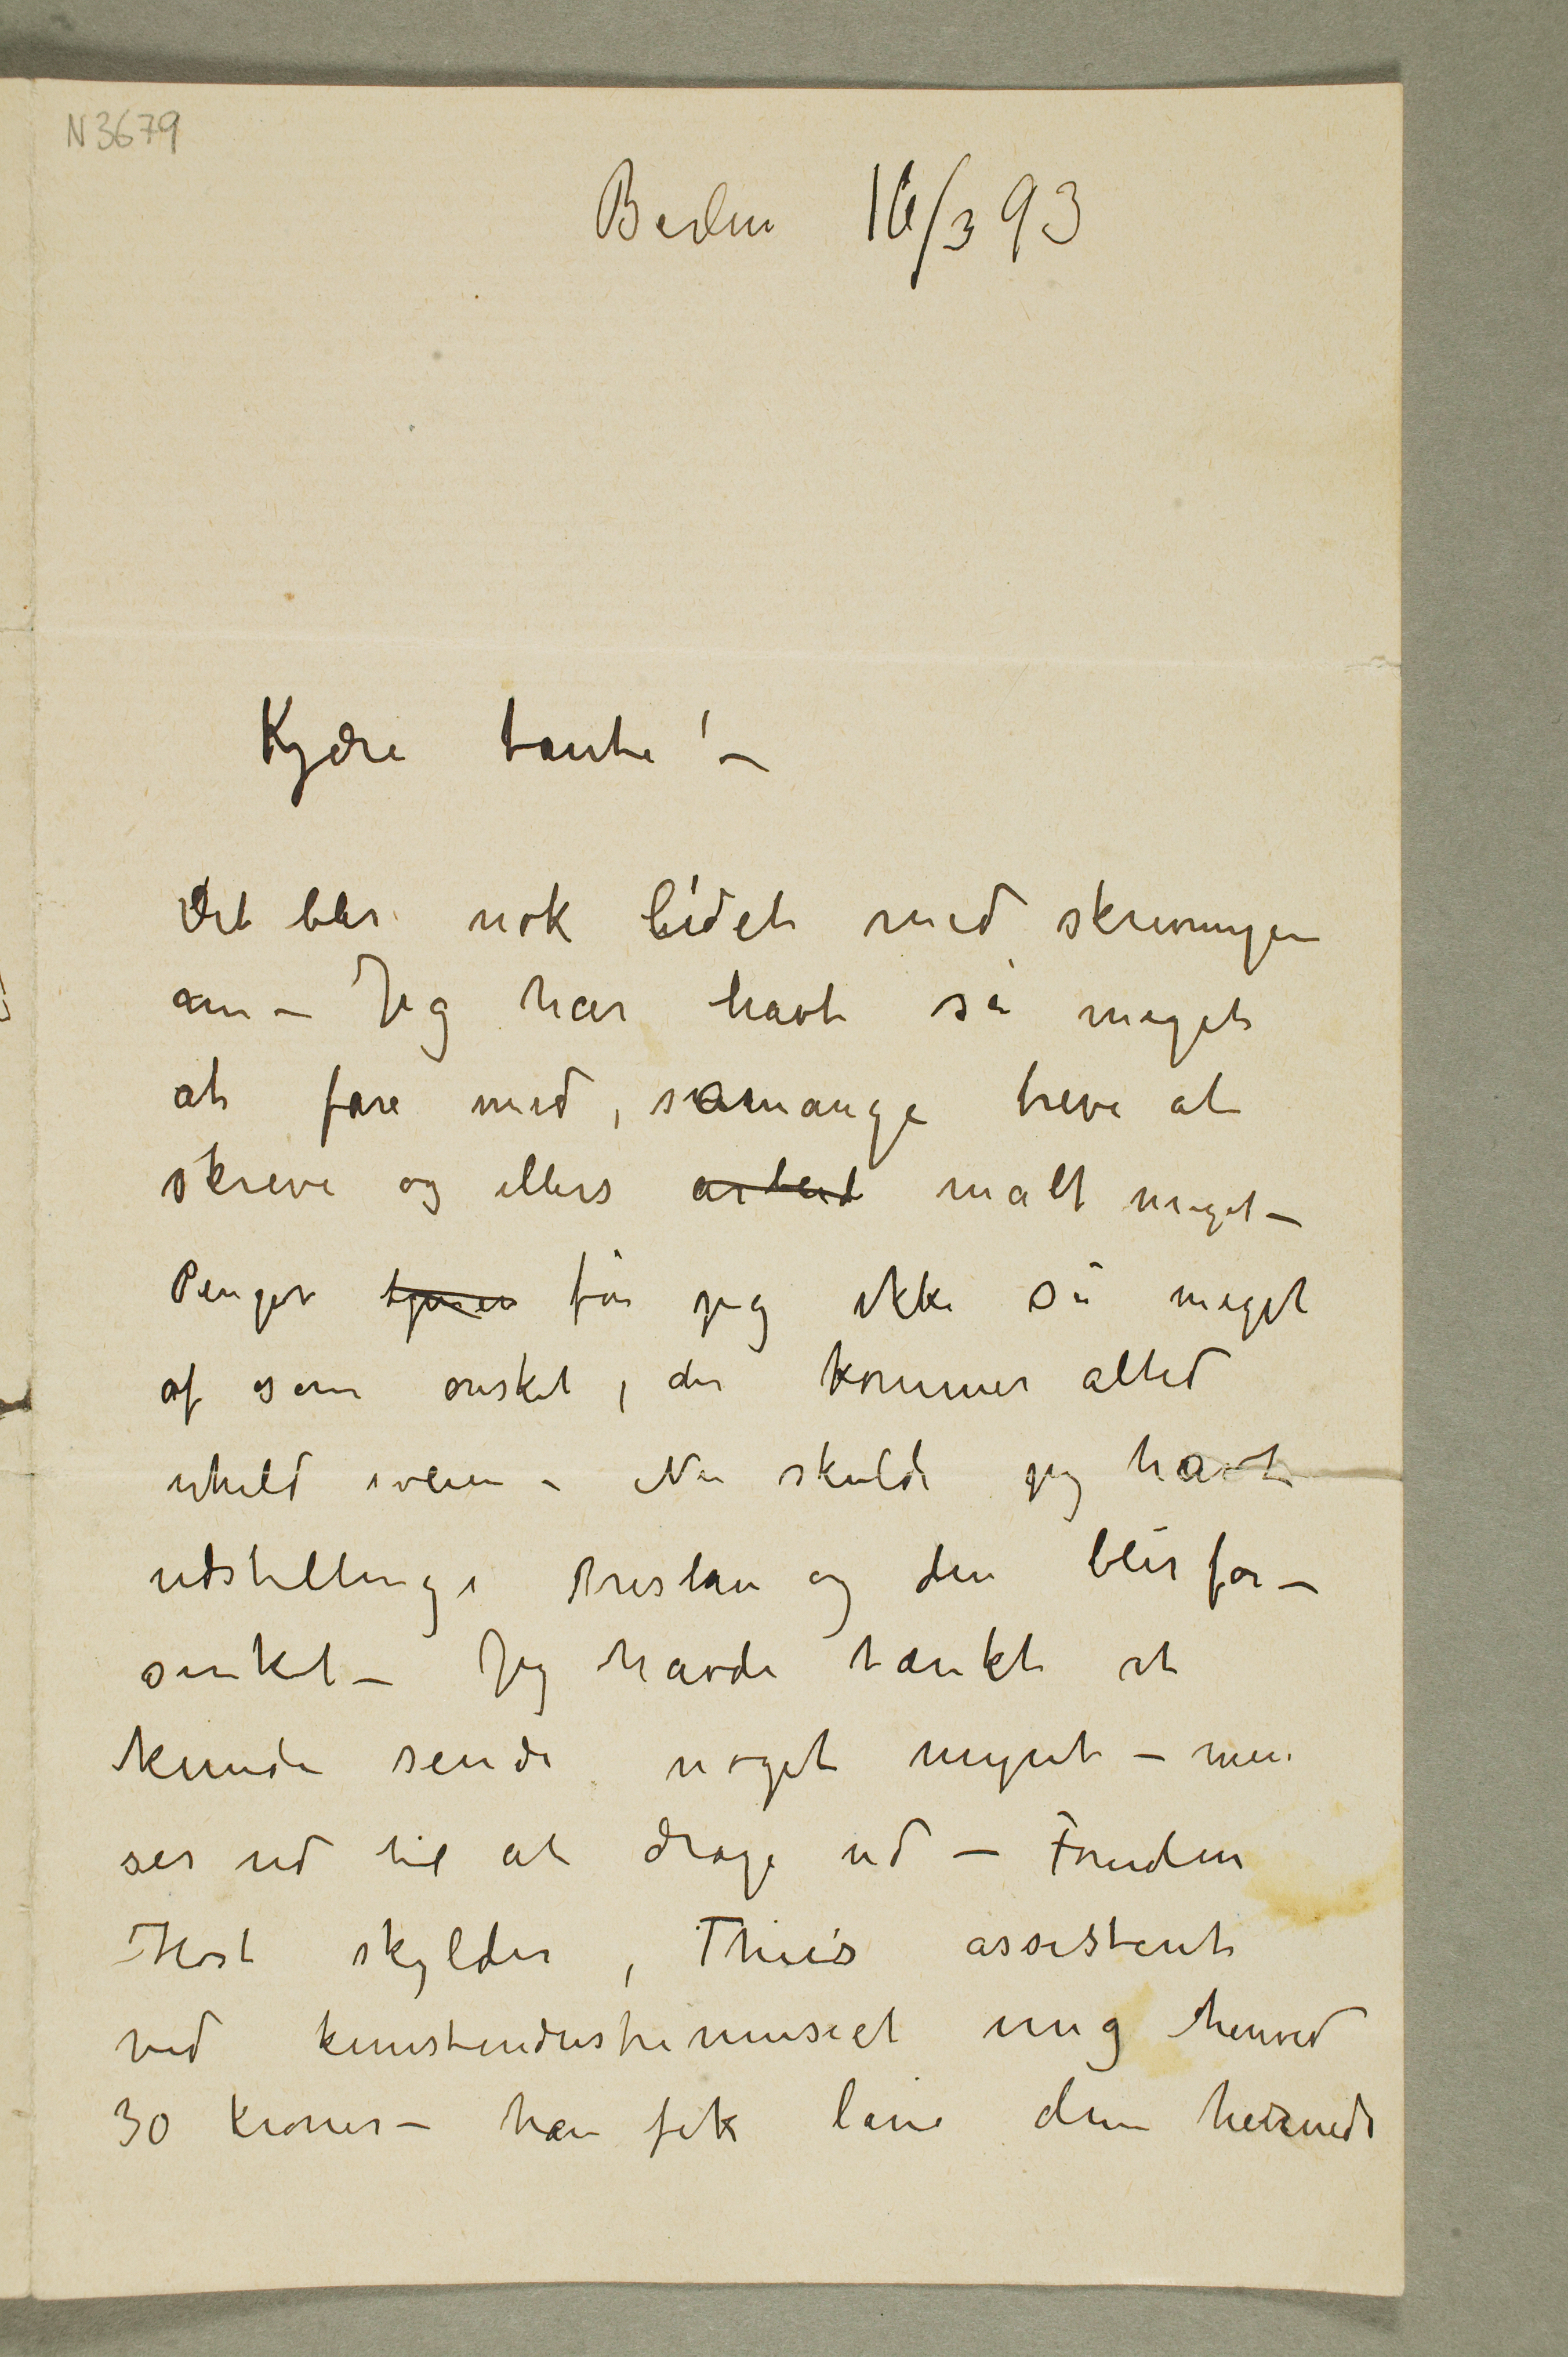 N 3679
Berlin 16/3 93
Kjære tante! –
Det blir nok lidet med skrivningen
an – Jeg har havt så meget
at fare med, såmange breve at
skrive og ellers arbeid malt meget –
Penger tjener får jeg ikke så meget
af som ønsket, der kommer altid
uheld iveien – Nu skulde jeg havt
udstilling i Breslau og den blir for–
sinket – Jeg havde tænkt at
kunde sende noget mynt – men
ser ud til at drage ud – Foruden
Høst skylder, Thiis assistent
ved kunstindustrimuseet mig henved
30 kroner – han fik låne dem hernede